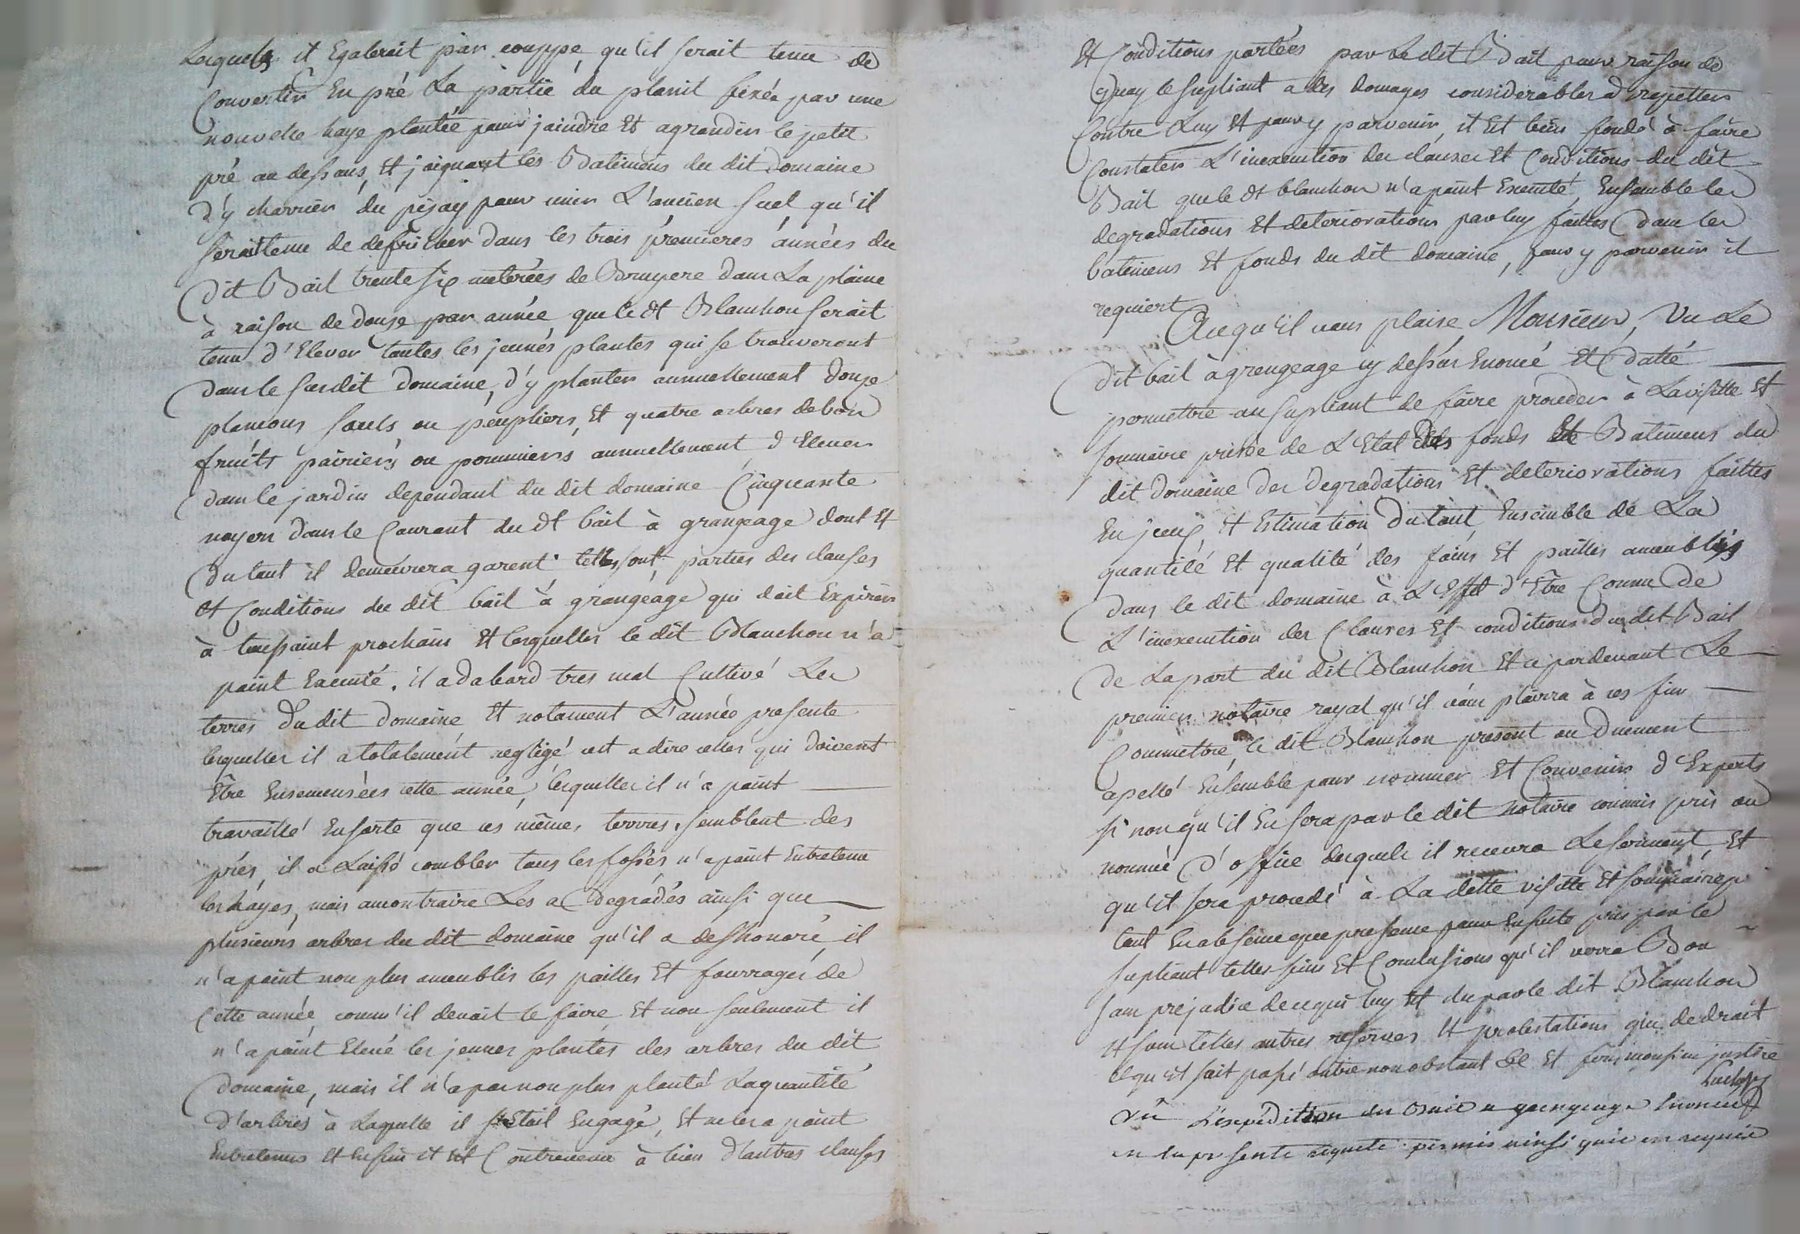 Lesquels il Egalerait par couppe, qu'il serait tenu de
Convertir En pré La partie du planit sérée par une
nouvelle haye plantée pour joindre Et agrandir le petit
pré au dessous, Et joignant les Batimens du dit Domaine
d'y charrier du pijay pour unir L'ancien suel qu'il
serait tenu de defricher Dans les trois premieres années du
Dit Bail trente six meterées de Bruyere dans La plaine
à raison de douze par année que le dt Blanchon serait
tenu d'Elever toutes les jeunes plantes qui se trouveront
dans le susdit domaine, d'y planter annuellement douze
plancons saules ou peupliers, Et quatre arbres de bon
fruits poiriers ou pommiers annuellement d'Elever
dans le jardin dependant du dit domaine Cinquante
noyers dans le Courant du dt bail à grangeage dont Et
du tout il demeurera garent. telles sont parties des clauses
Et Conditions du dit bail à grangeage qui doit Expirer
à toussaint prochain Et lesquelles le dit Blanchon n'a
point Executé. il a dabord tres mal Cultivé Les
terres du dit domaine Et notament L'année presente
lesquelles il a totalement negligé cest a dire celles qui doivent
Être Ensemensées cette année, lesquelles il n'a point
travaillé Ensorte que ces mêmes terres semblent des
prés, il a Laissé combler tous les fossés n'a point Entretenu
les hayes, mais au contraire Les a degradés ainsi que
plusieurs arbres du dit domaine qu'il a deshonoré, il
n'a point non plus ameublis les pailles Et fourrages de
Cette année comm'il devait le faire Et non seulement il
n'a point Elevé les jeunes plantes des arbres du dit
domaine, mais il n'a pas non plus planté La quantité
D'arbres à Laquelle il s'Etait Engagé, Et ne les a point
Entretenus Et Enfin il Est Contrevenu à bien d'autres clauses
Et Conditions portées par Le dit Bail pour raison de
Quoy le supliant a des domages considerables a repetter
Contre Luy Et pour y parvenir, il Est bien fondé à faire
Constater L'inexecution des clauses Et Conditions du dit
Bail que le dt blanchon n'a point Executé, Ensemble les
degradations Et deteriorations par luy faittes dans les
batimens Et fonds du dit domaine, pour y parvenir il
requiert
Ace qu'il vous plaise Monsieur, Vu Le
dit bail à grangeage cy dessus Enoncé Et datté
permettre au supliant de faire proceder à La visitte Et
sommaire prisée de L'Etat des fonds Et Batimens du
dit Domaine des degradations Et deteriorations faittes
En iceux, Et Estimation du tout Ensemble de La
quantité Et qualité des foins Et pailles ameublis
dans le dit domaine à L'Effet d'Être Connu de
L'inexecution des Clauses Et conditions du dit Bail
de La part du dit Blanchon Et ce pardevant Le
premier notaire royal qu'il vous plairra à ces fins
Commettre, le dit Blanchon present ou Duement
apellé Ensemble pour nommer Et Convenir d'Experts
si non qu'il En sera par le dit notaire commis pris ou
nommé d'office desquels il recevra Le serment, Et
qu'il sera procedé à La ditte visitte Et sommaire p
tant En absence que presence pour Ensuite pris par le
supliant telles fins Et Conclusions qu'il verra Bon
sans prejudice de ce qui luy Est du par le dit Blanchon
Et sous telles autres reserves Et protestations que de droit
Ce qu'il soit passé outre non obstant Et ferés monsieur justice
Vû L'expédition du Bail a grangeage Enoncée
en la presente requete permis ainsi quil en requis